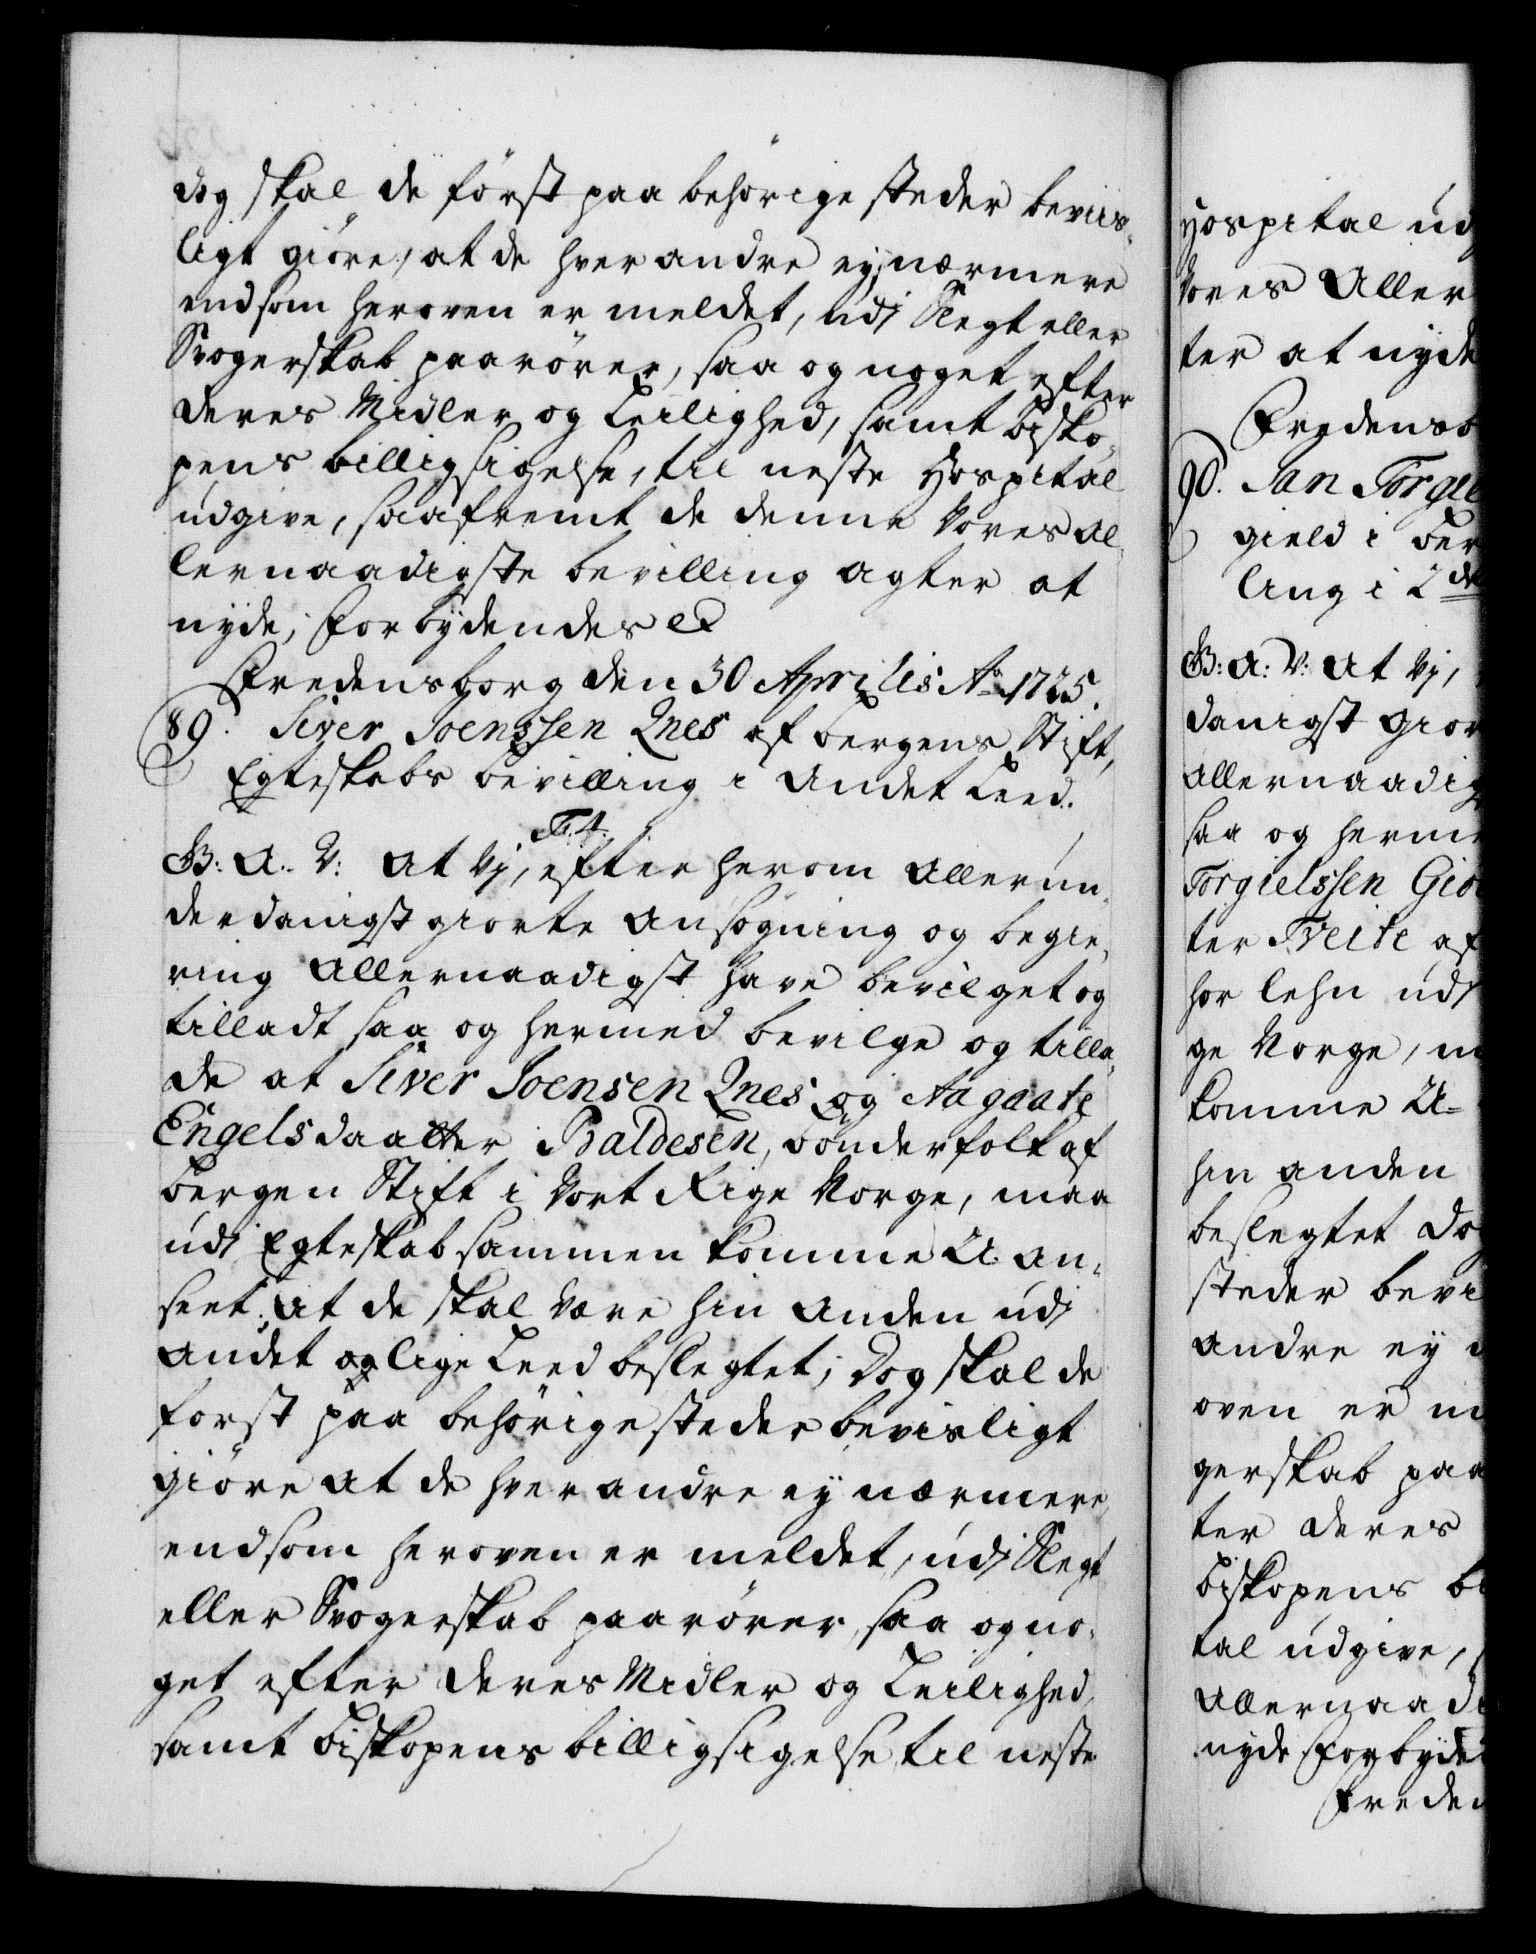 dog skal de först paa behörige steder beviis-
ligt giöre, at de hver andre ey nærmere
end som heroven er meldet, udi Slegt eller
Svogerskab paarörer, saa og noget efter
deres Midler og Leilighed, samt Bisko-
pens billigsigelse, til neste Hospital
udgive, saafremt de denne Vores Al-
lernaadigste bevilling agter at
nyde; Forbydendes etc
Fredensborg den 30 Aprilis Ao 1725.
89. Siver Joenssen Qnes af Bergens Stift,
Egteskabs Bevilling i Andet Leed.
F. 4.
G: A: V: At Vj, efter herom Allerun-
derdanigst giorte Ansögning og begie-
ring Allernaadigst have bevilget og
tilladt saa og hermed bevilge og tilla-
de at Siver Joensen Qnes og Aagaate
Engelsdaatter Baldesen, Bönderfolk af
Bergen Stift i Vort Rige Norge, maa
udi Egteskab sammen komme U-an-
seet: At de skal være hin Anden udi
Andet og lige Leed beslegtet; Dog skal de
först paa behörige steder bevisligt
giöre At de hver andre ey nærmere,
end som heroven er meldet, udi Slegt
eller Svogerskab paarörer, saa og no-
get efter deres Midler og Leilighed,
samt Biskopens billigsigelse til neste
Hospital ud
Vores Aller
ter at nyde
Fredensb
90. Jan Torgie
gield i Ber
ling i 2de
G: A: V: At Vj,
danigst gior
Allernaadig
saa og herme
Torgielssen Gio
ter Tveite af
hor lehn udi
ge Norge, m
komme U-
hin anden
beslegtet do
steder bevi
andre ey
oven er m
gerskab paa
ter deres
Biskopens bi
tal udgive,
Allernaadi
nyde Forbyde
Freden